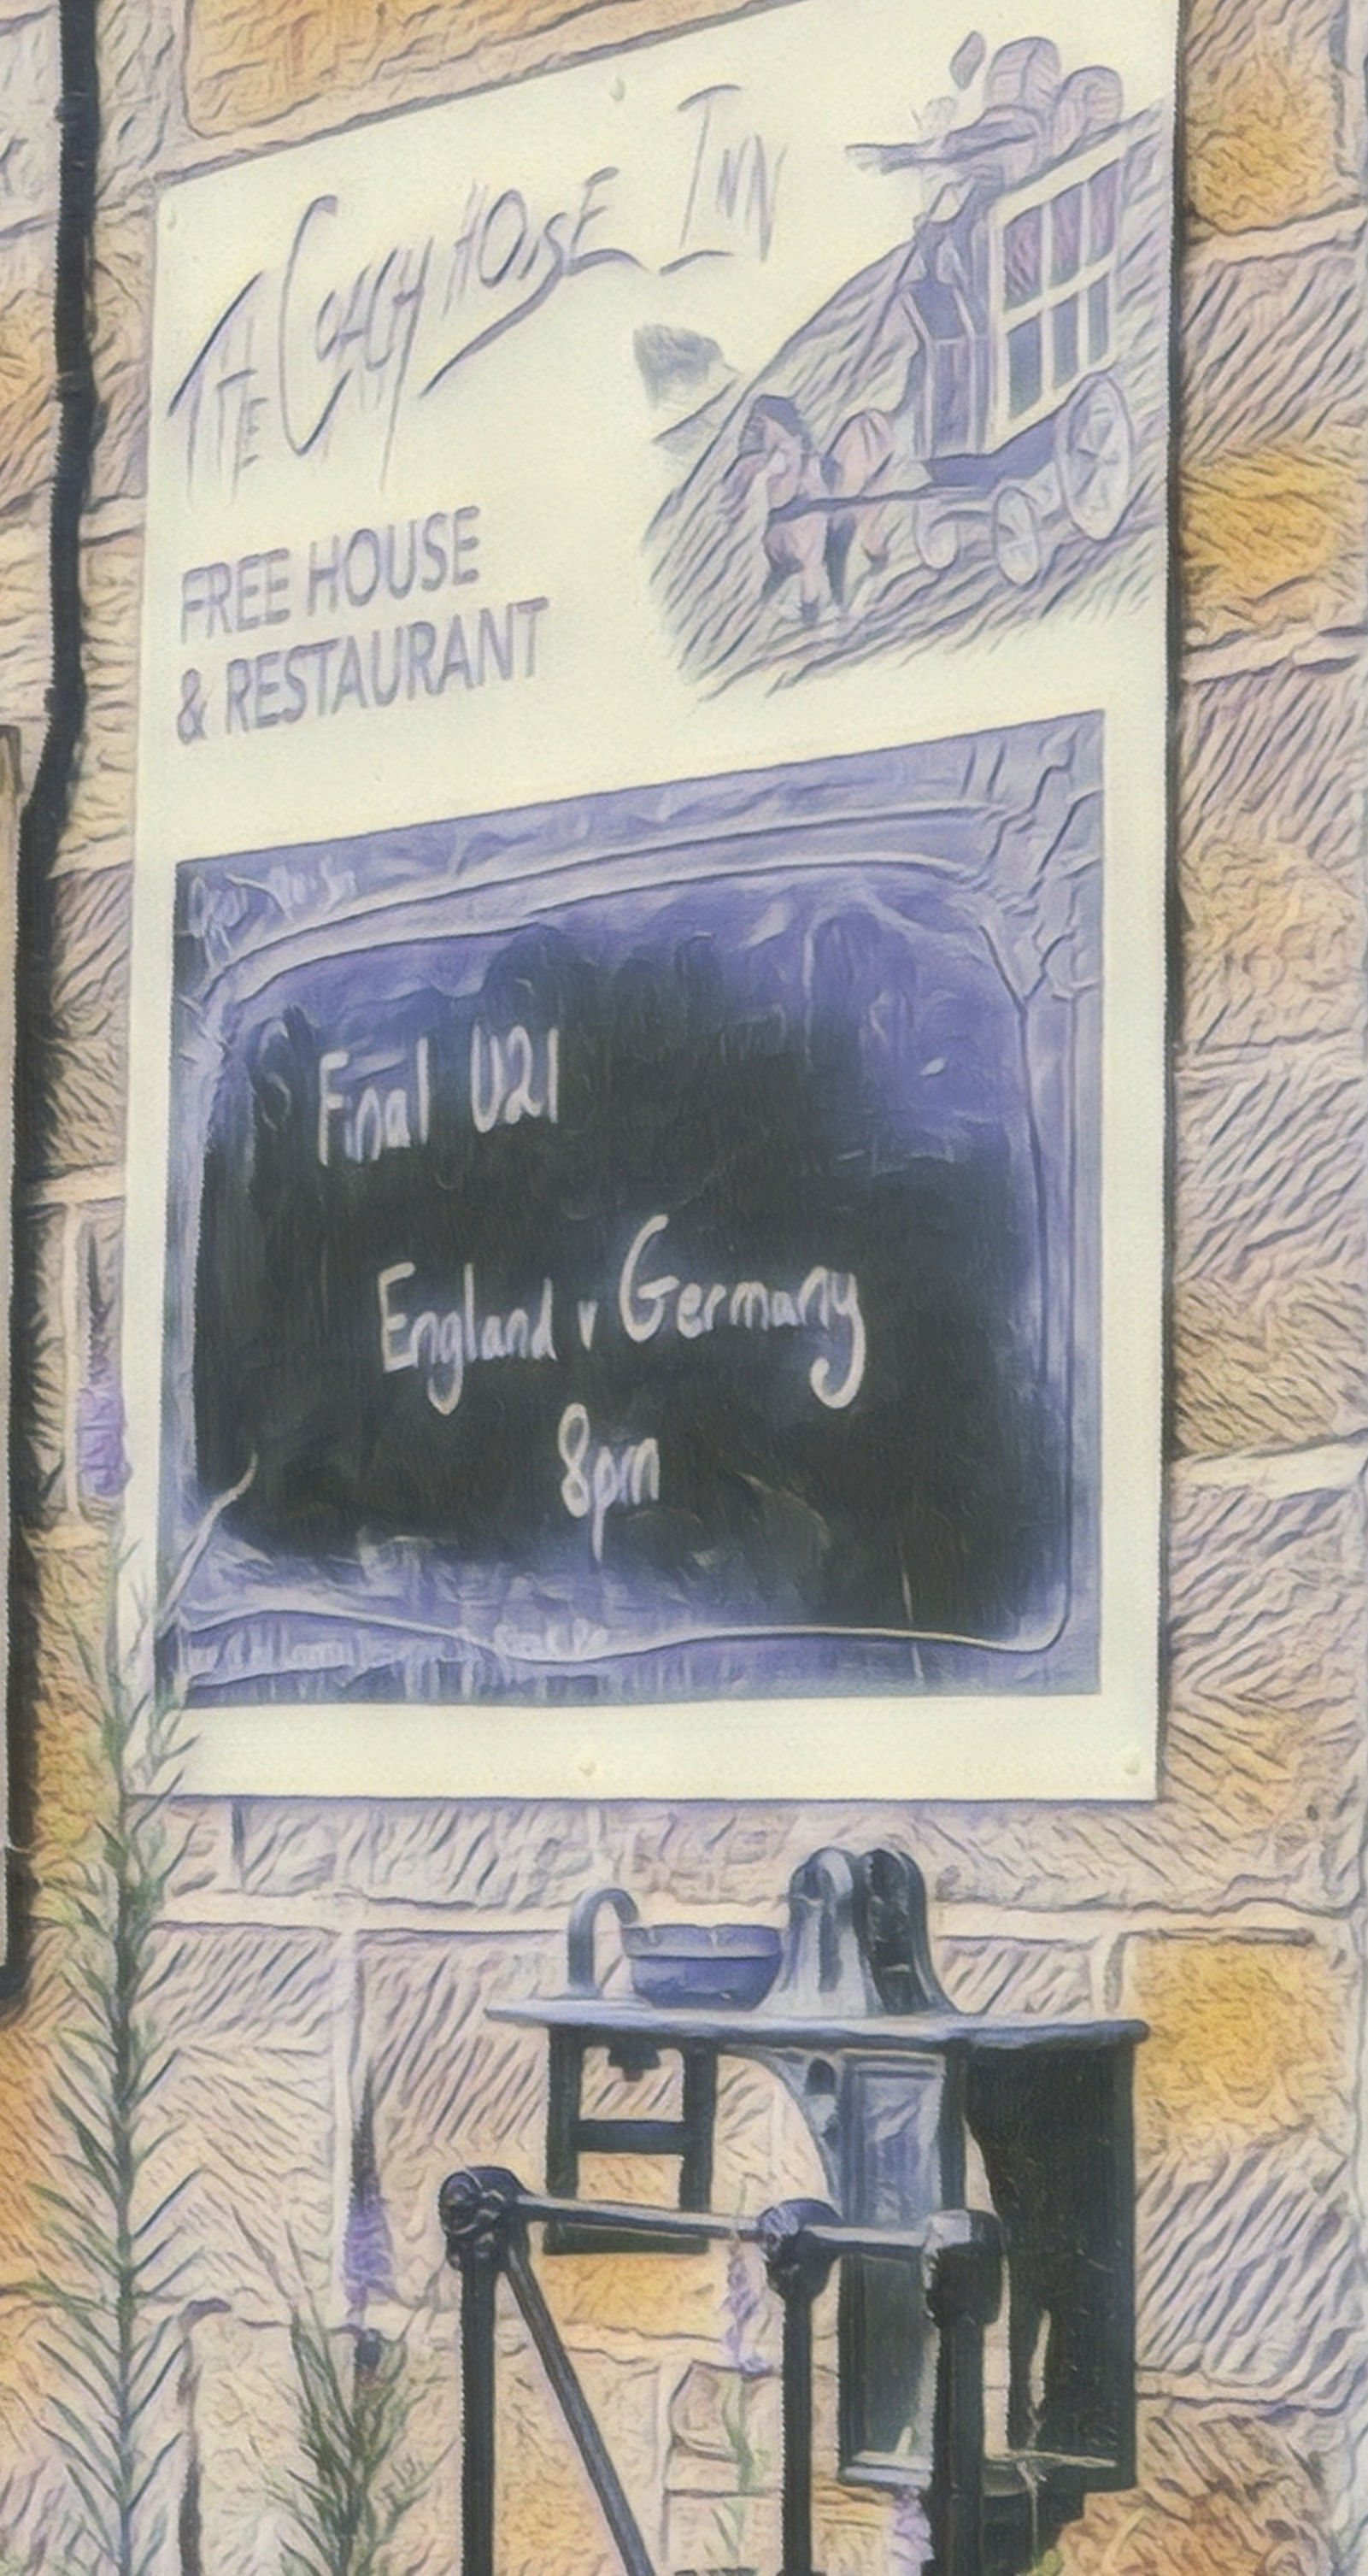 THE COACH HOUSE INN
FREE HOUSE
& RESTAURANT
Final U21
England v Germany
8pm